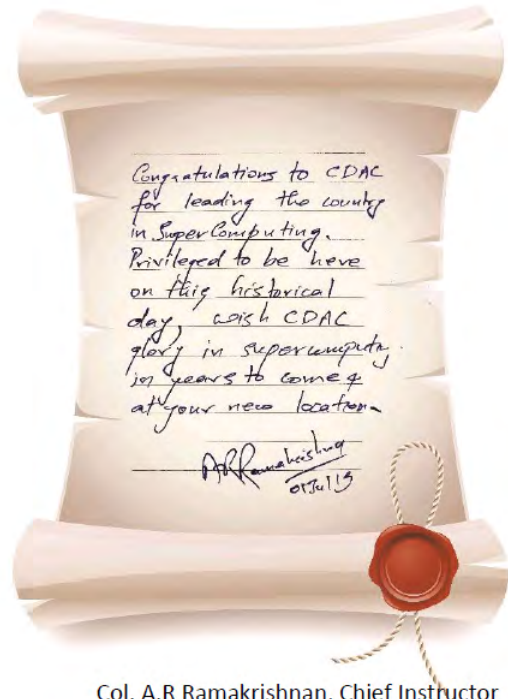 Congratulations to CDAC
for leading the country
in SuperComputing.
Privileged to be here
on this historical
day, wish CDAC
glory in supercomputing
in years to come &
at your new location.
A R Ramakrishnan
01 Jul 13
Col. A.R Ramakrishnan, Chief Instructor